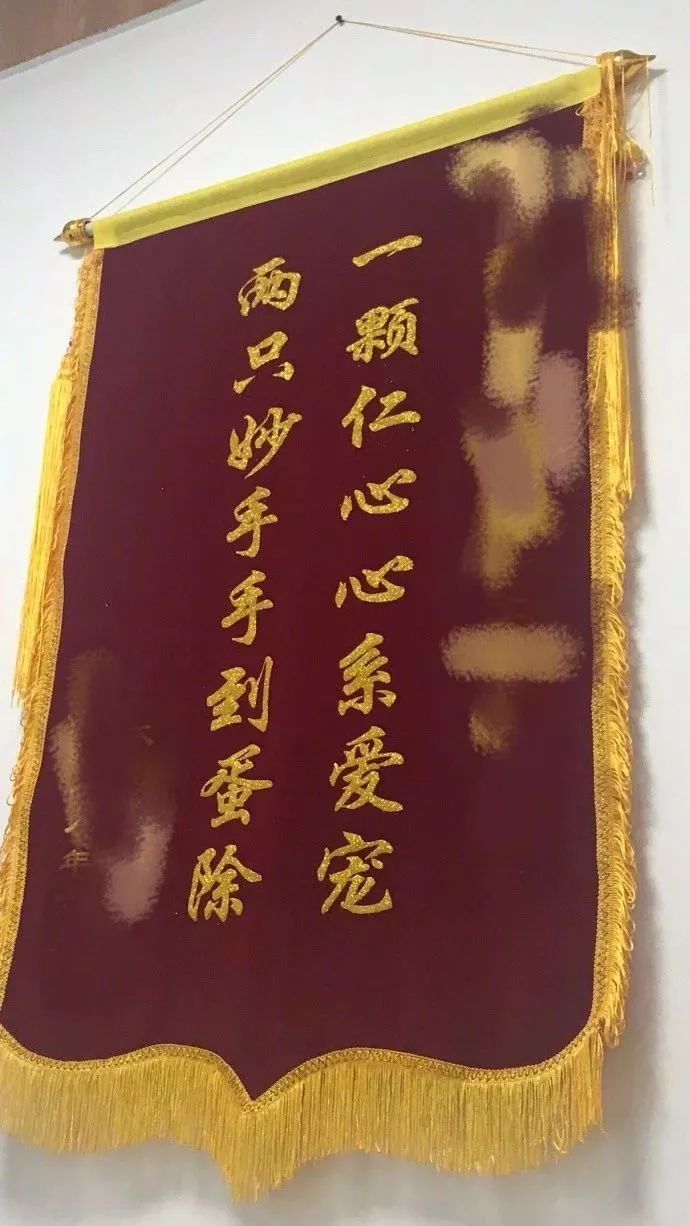 一颗仁心心系爱宠
两只妙手手到蛋除
年